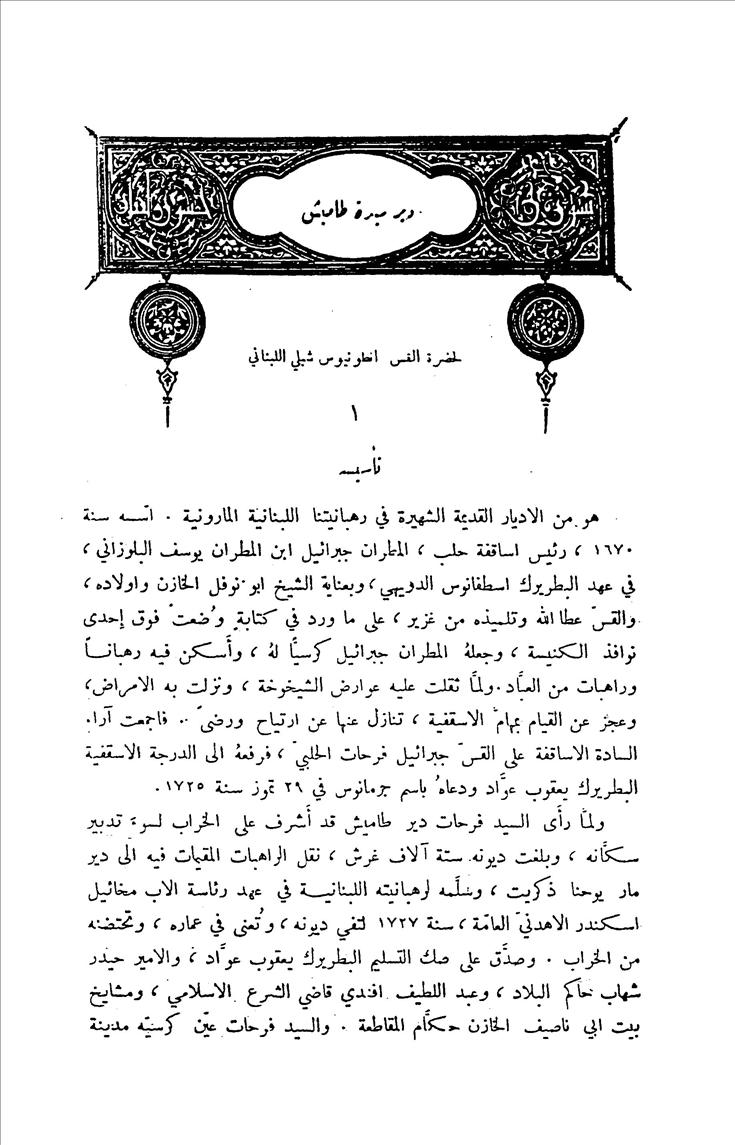 دير سيدة طاميش
لحضرة القس انطونيوس شبلي اللبناني
١
تأسيسه
هو من الاديار القديمة الشهيرة في رهبانيتنا اللبنانية المارونية . اسّسه سنة
١٦٧٠ ، رئيس اساقفة حلب ، المطران جبرائيل ابن المطران يوسف البلوزاني ،
في عهد البطريرك اسطفانوس الدويهي ، وبعناية الشيخ ابو نوفل الخازن واولاده ،
والقسّ عطا الله وتلميذه من غزير ، على ما ورد في كتابةٍ وُضعتْ فوق إحدى
نوافذ الكنيسة ، وجعلهُ المطران جبرائيل كرسيًّا لهُ ، وأسكن فيه رهبانـاً
وراهبات من العبَّاد . ولمَّا ثقلت عليه عوارض الشيخوخة ، ونزلت به الامراض ،
وعجز عن القيام بمهامّ الاسقفية ، تنازل عنها عن ارتياح ورضىً .. فاجمعت آراء
السادة الاساقفة على القسّ جبرائيل فرحات الحلبيّ ، فرفعهُ الى الدرجة الاسقفية
البطريرك يعقوب عوَّاد ودعاهُ باسم جرمانوس في ٢٩ تموز سنة ١٧٢٥ .
ولمَّا رأى السيد فرحات دير طاميش قد أشرف على الخراب لسوء تدبير
سكَّانه ، وبلغت ديونه ستة آلاف غرش ، نقل الراهبات المقيمات فيه الى دير
مار يوحنا ذكريت ، وسلَّمه لرهبانيته اللبنانيـة في عهد رئاسة الاب مخائيل
اسكندر الاهدنيّ العامّة ، سنة ١٧٢٧ لتفي ديونه ، وتُعنى في عماره ، وتحتضنه
من الخراب . وصدَّق على صك التسليم البطريرك يعقوب عوَّاد ، والامير حيدر
شهاب حاكم البلاد ، وعبد اللطيف افندي قاضي الشرع الاسلامي ، ومشايخ
بيت ابي ناصيف الخازن حكَّام المقاطعة . والسيد فرحات عيّن كرسيّه مدينة